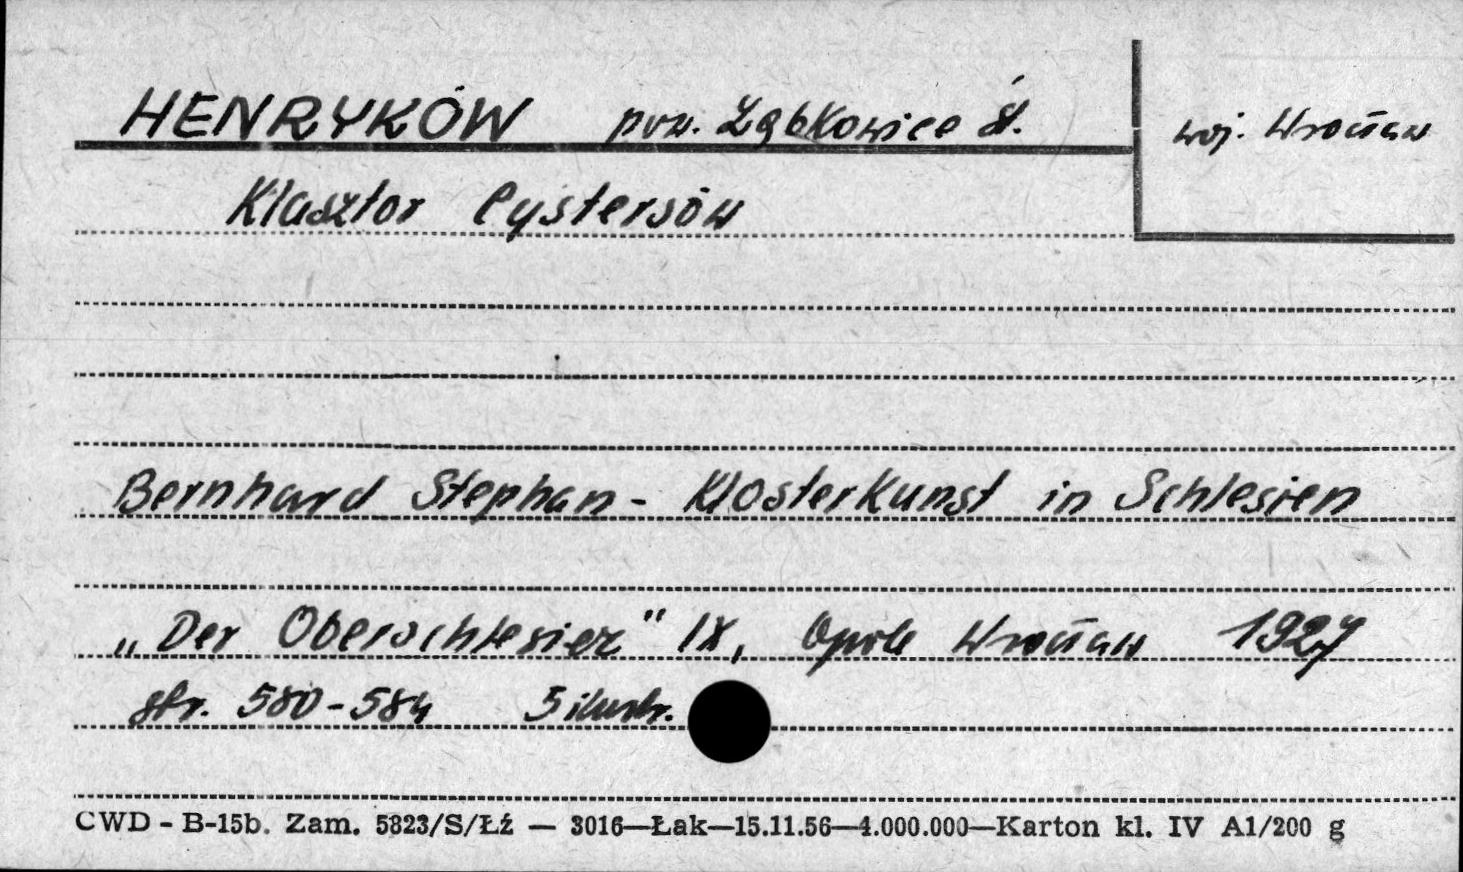 HENRYKÓW pow. Ząbkowice Śl. woj. Wrocław
Klasztor Cystersów
Bernhard Stephan - Klosterkunst in Schlesien
„Der Oberschlesier" IX, Opole Wrocław 1927
str. 580-584 5 ilustr.
CWD - B-15b. Zam. 5823/S/Łź — 3016—Łak—15.11.56—4.000.000—Karton kl. IV A1/200 g